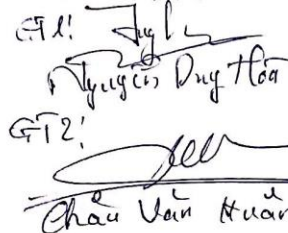 GT1:
Nguyễn Duy Hòa
GT2:
Châu Văn Huân